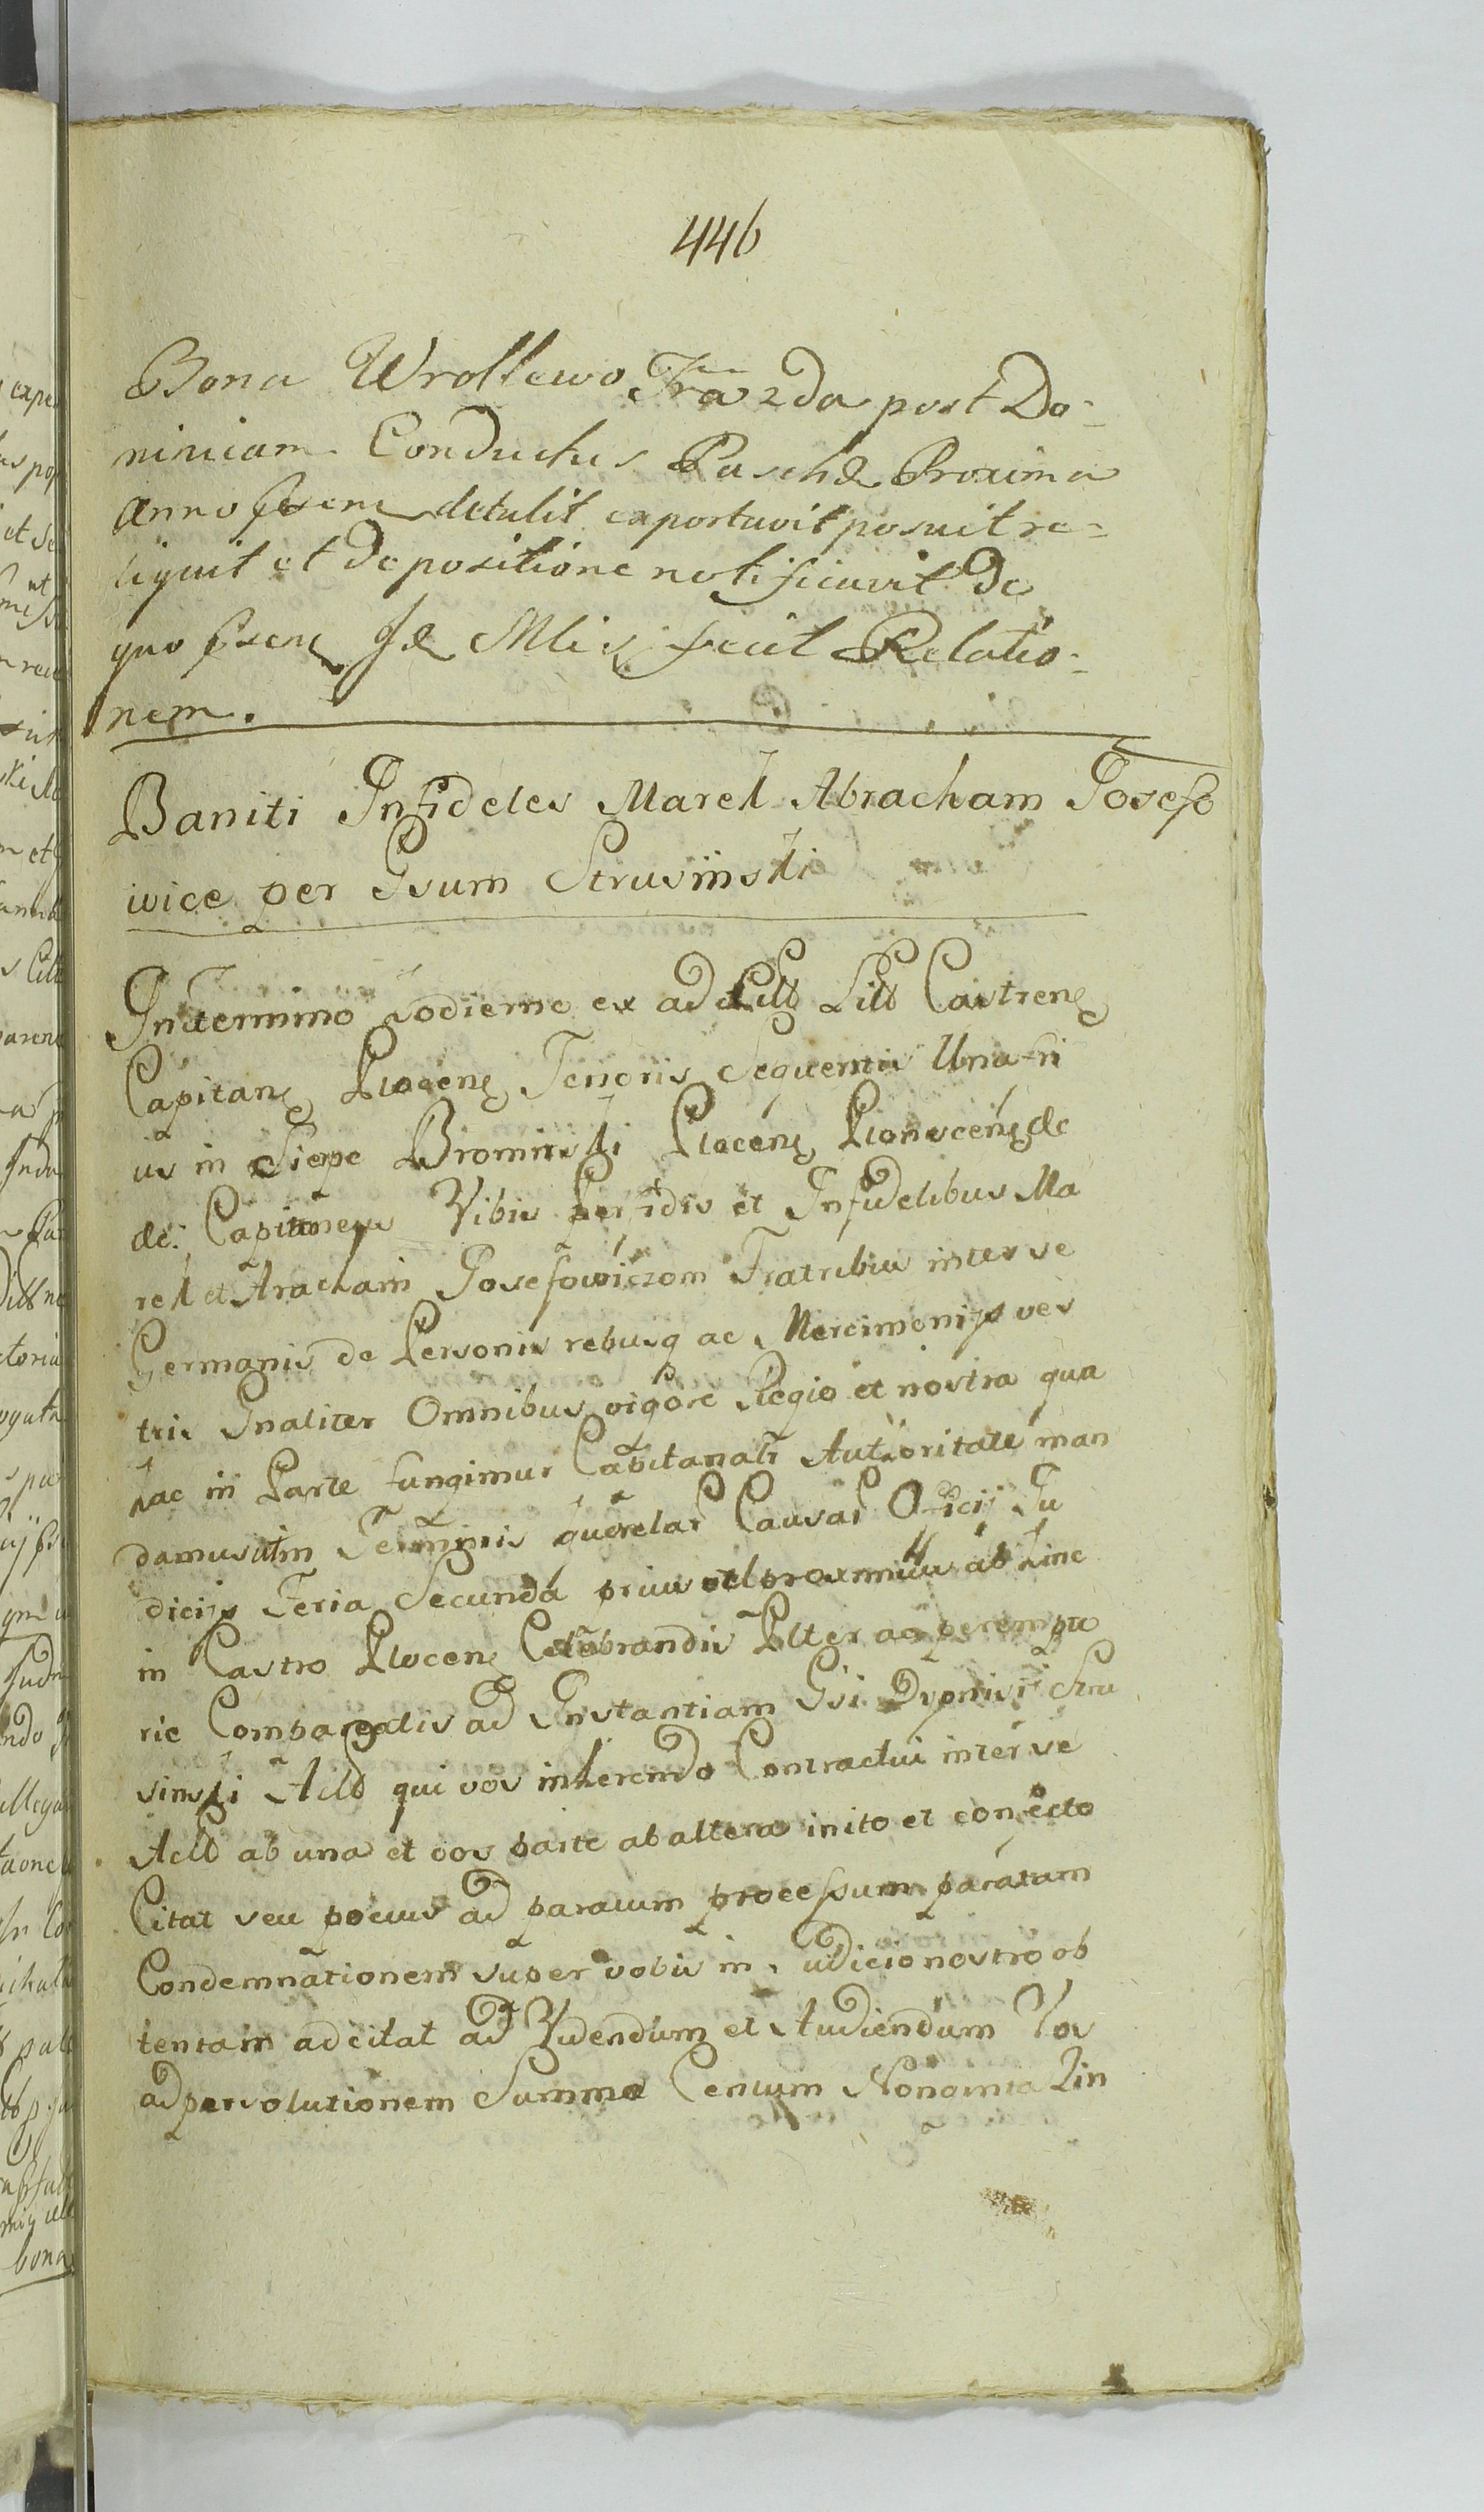 446
Bona Wrollewo Fra 2da post Do-
minicam Conductus Paschæ Proxima
Anno pսen detulit exportavit posuit re-
liquit et de positione notificavit De
quo Psen se Mlis fecit Relatio-
nem.
Baniti Infideles Marek Abracham Josefo
wice per Gsum Strusinski
In termino hodierno ex ad Citt Litt Castren
Capitan Plocen Tenoris Sequentis Unafri
us in Sierpc Brominski Plocen Plonscen &c
&c: Capitaneus Vibis Perfidis et Infidelibus Ma
rek et Abracham Josefowiczom Fratribus inter se
Germanis de Personis rebusq ac Mercimonijs ves
tris Gnaliter Omnibus vigore Regio et nostra qua
hac in Parte fungimur Capitanali Authoritate man
damus utin Terminis querelar Causar Officij Ju
dicijs Feria Secunda prius vel proximius ab hinc
in Castro Plocen Celebrandis Plter ac perempto
rie Compareatis ad Instantiam Gsi Dyonisii Stru
sinski Actb qui vos inherendo Contractui inter se
Actb ab una et vos parte ab altera inito et confecto
Citat seu pocius ad paratum processum paratam
Condemnationem super vobis in Judicio nostro ob
tentam adcitat ad Videndum et Audiendum Vos
ad persolutionem Summæ Centum Nonaginta Qin